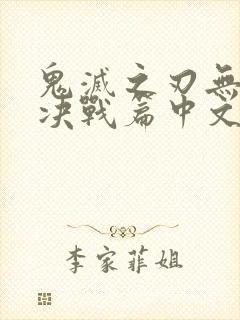 鬼滅之刃無
决戰篇中文
李家菲姐